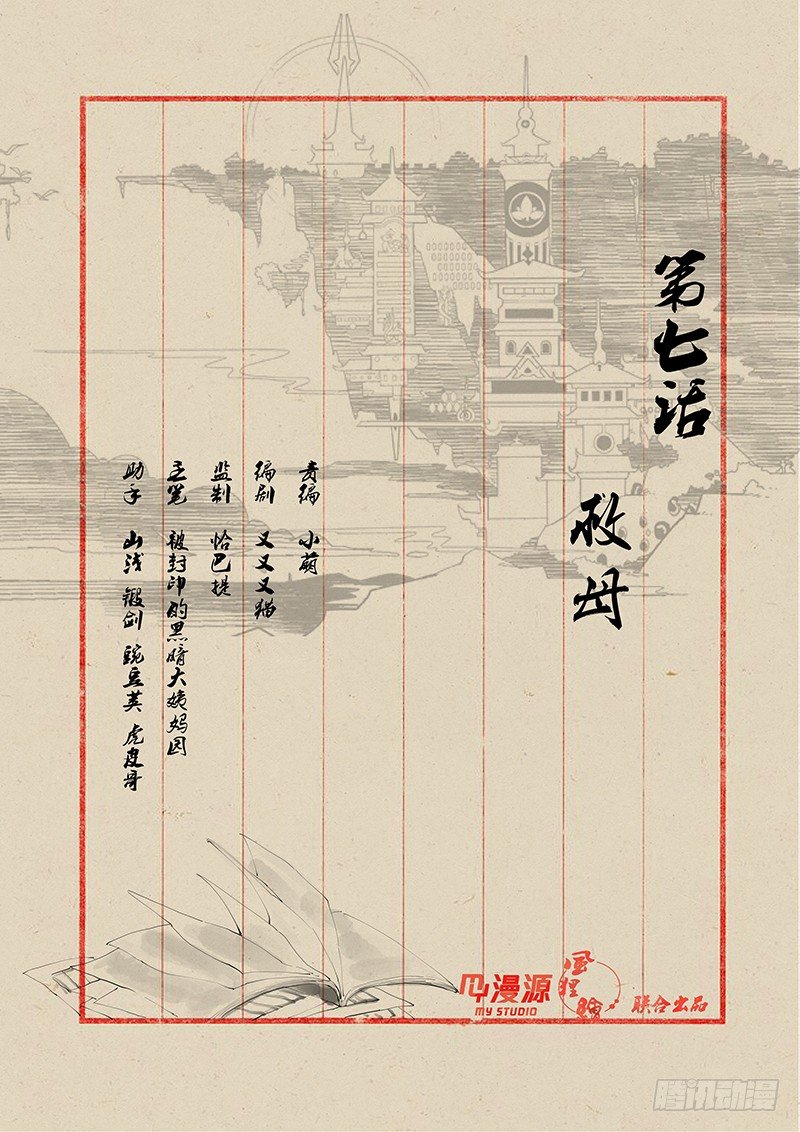 第七话
救母
责编 小萌
编剧 又又又猫
监制 恰巴提
主笔 被封印的黑暗大姨妈园
助手 山浅 锻剑 豌豆荚 虎皮哥
漫源
MY STUDIO
联合出品
腾讯动漫